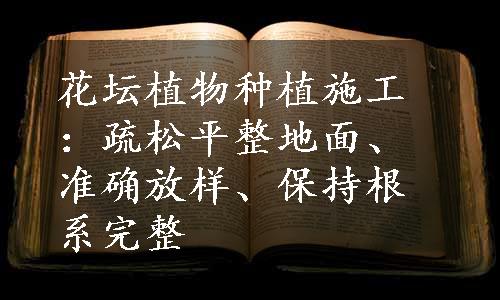 花坛植物种植施工
：疏松平整地面、
准确放样、保持根
系完整